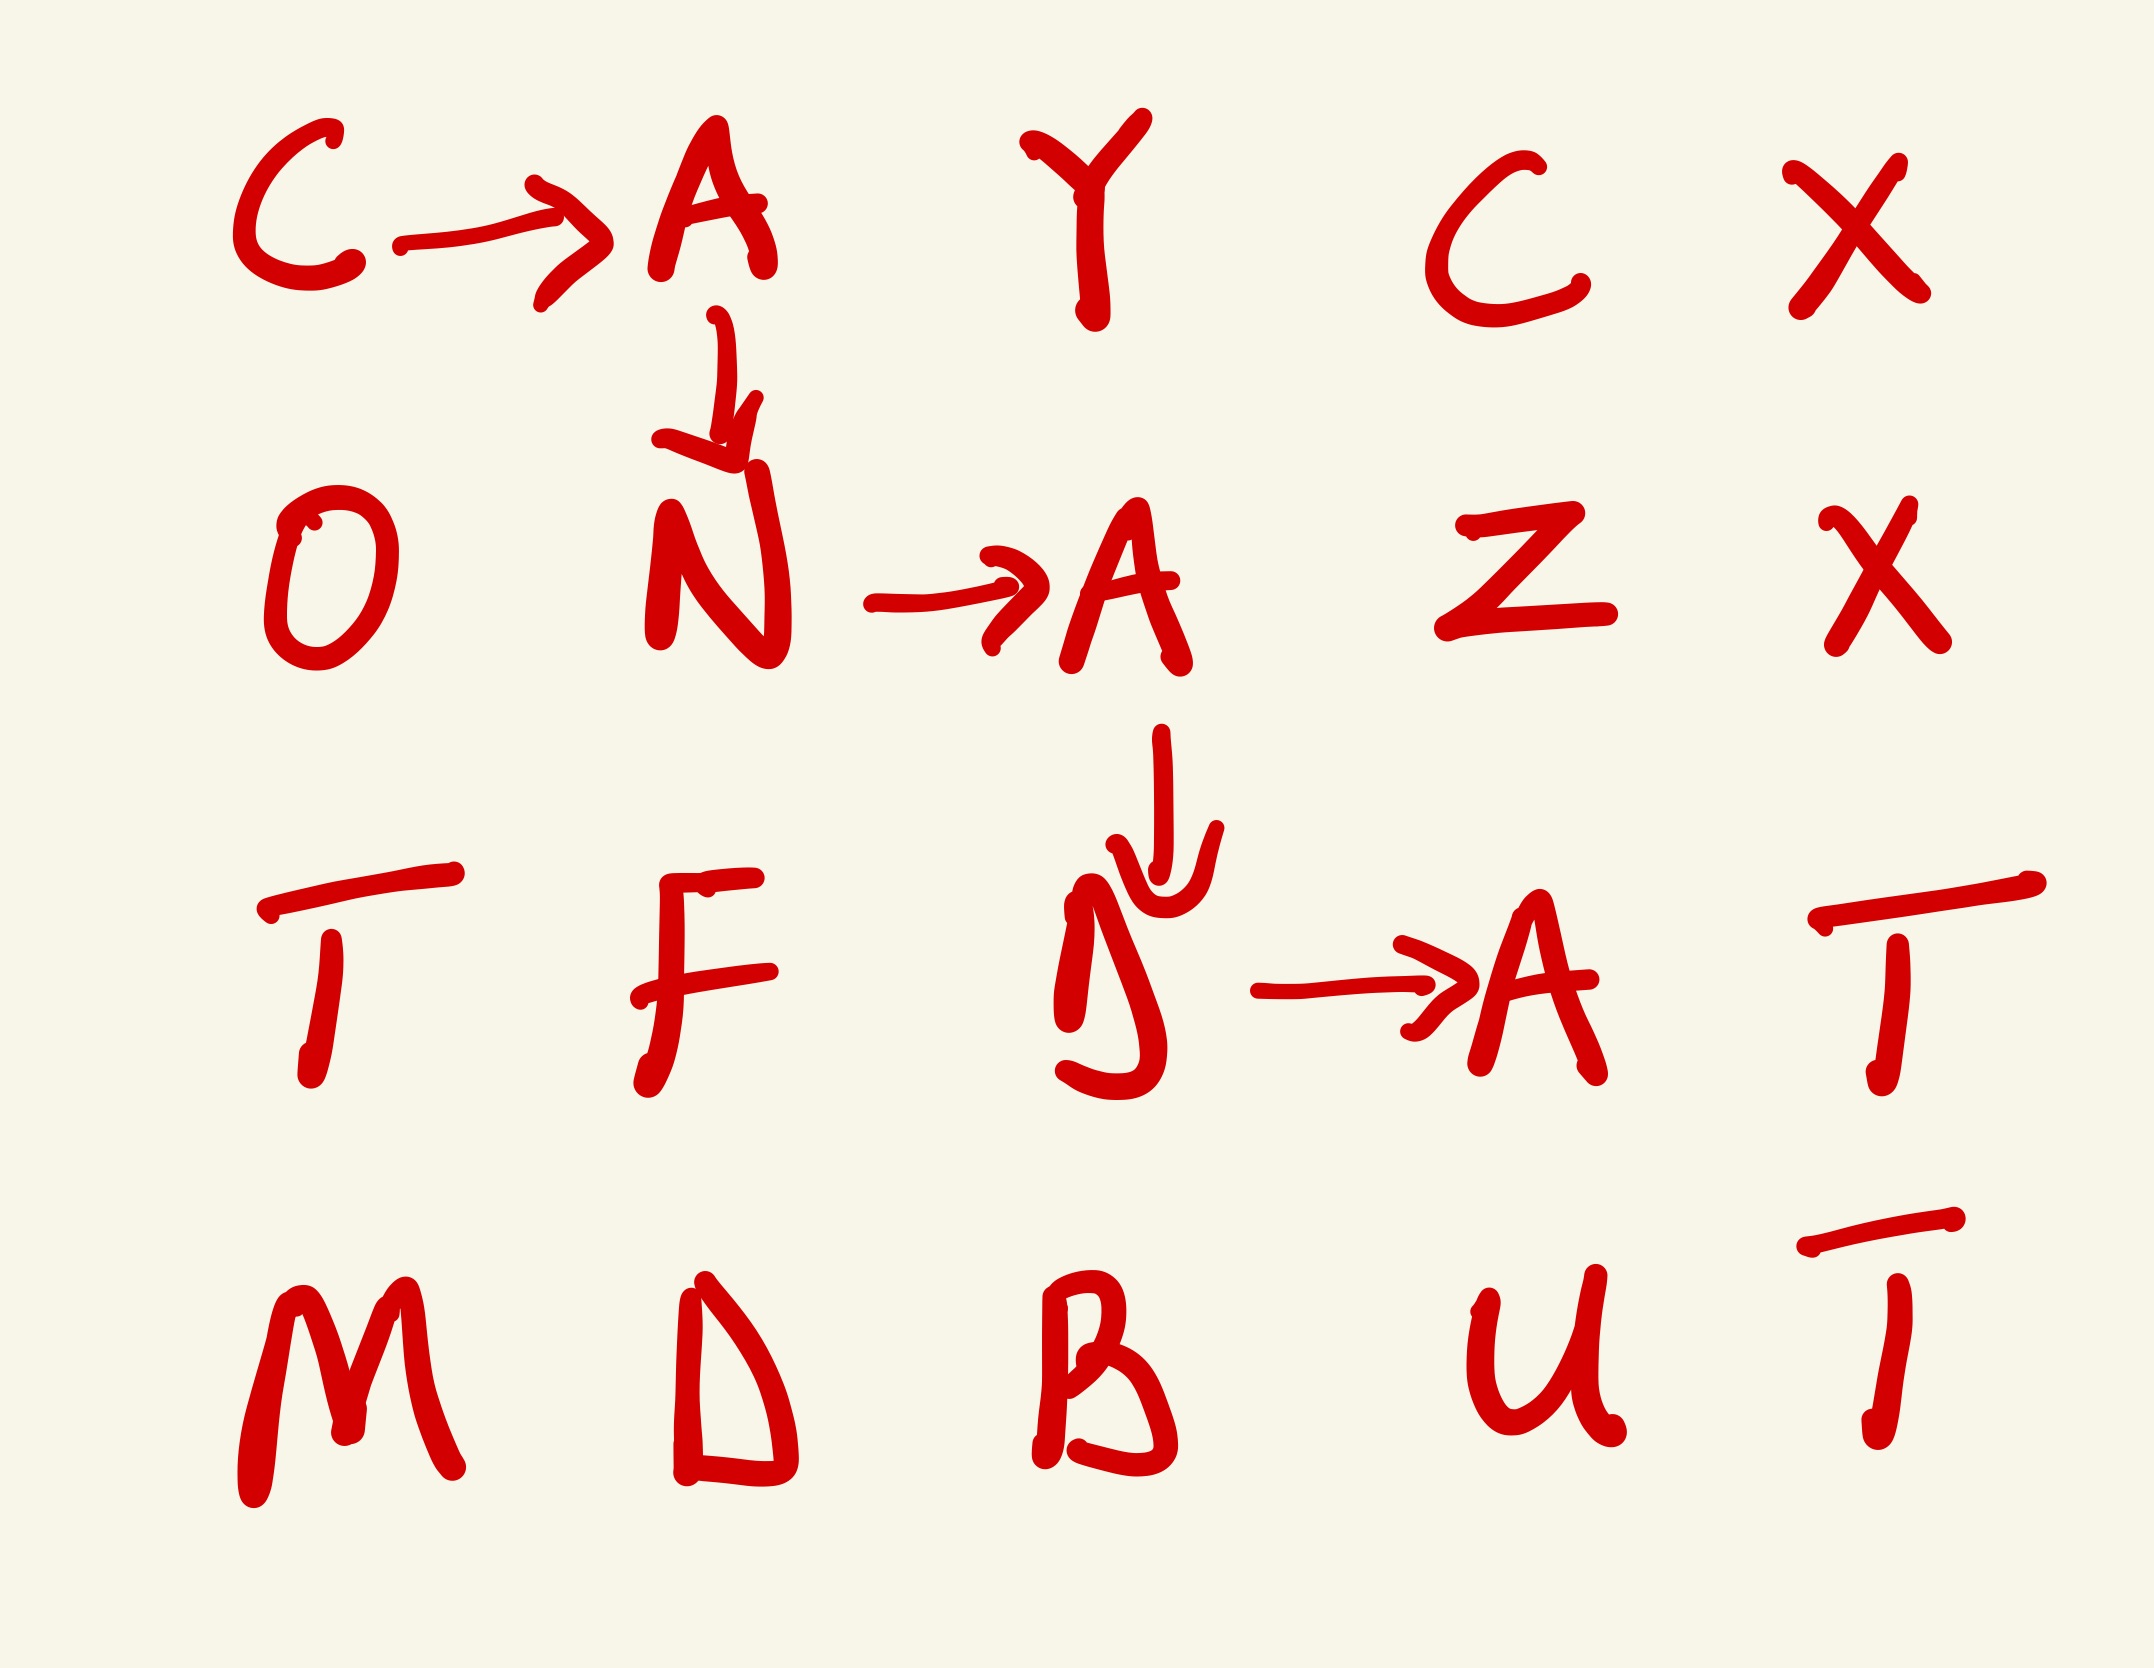 C → A Y C X
O N → A Z X
T F D → A T
M D B U T